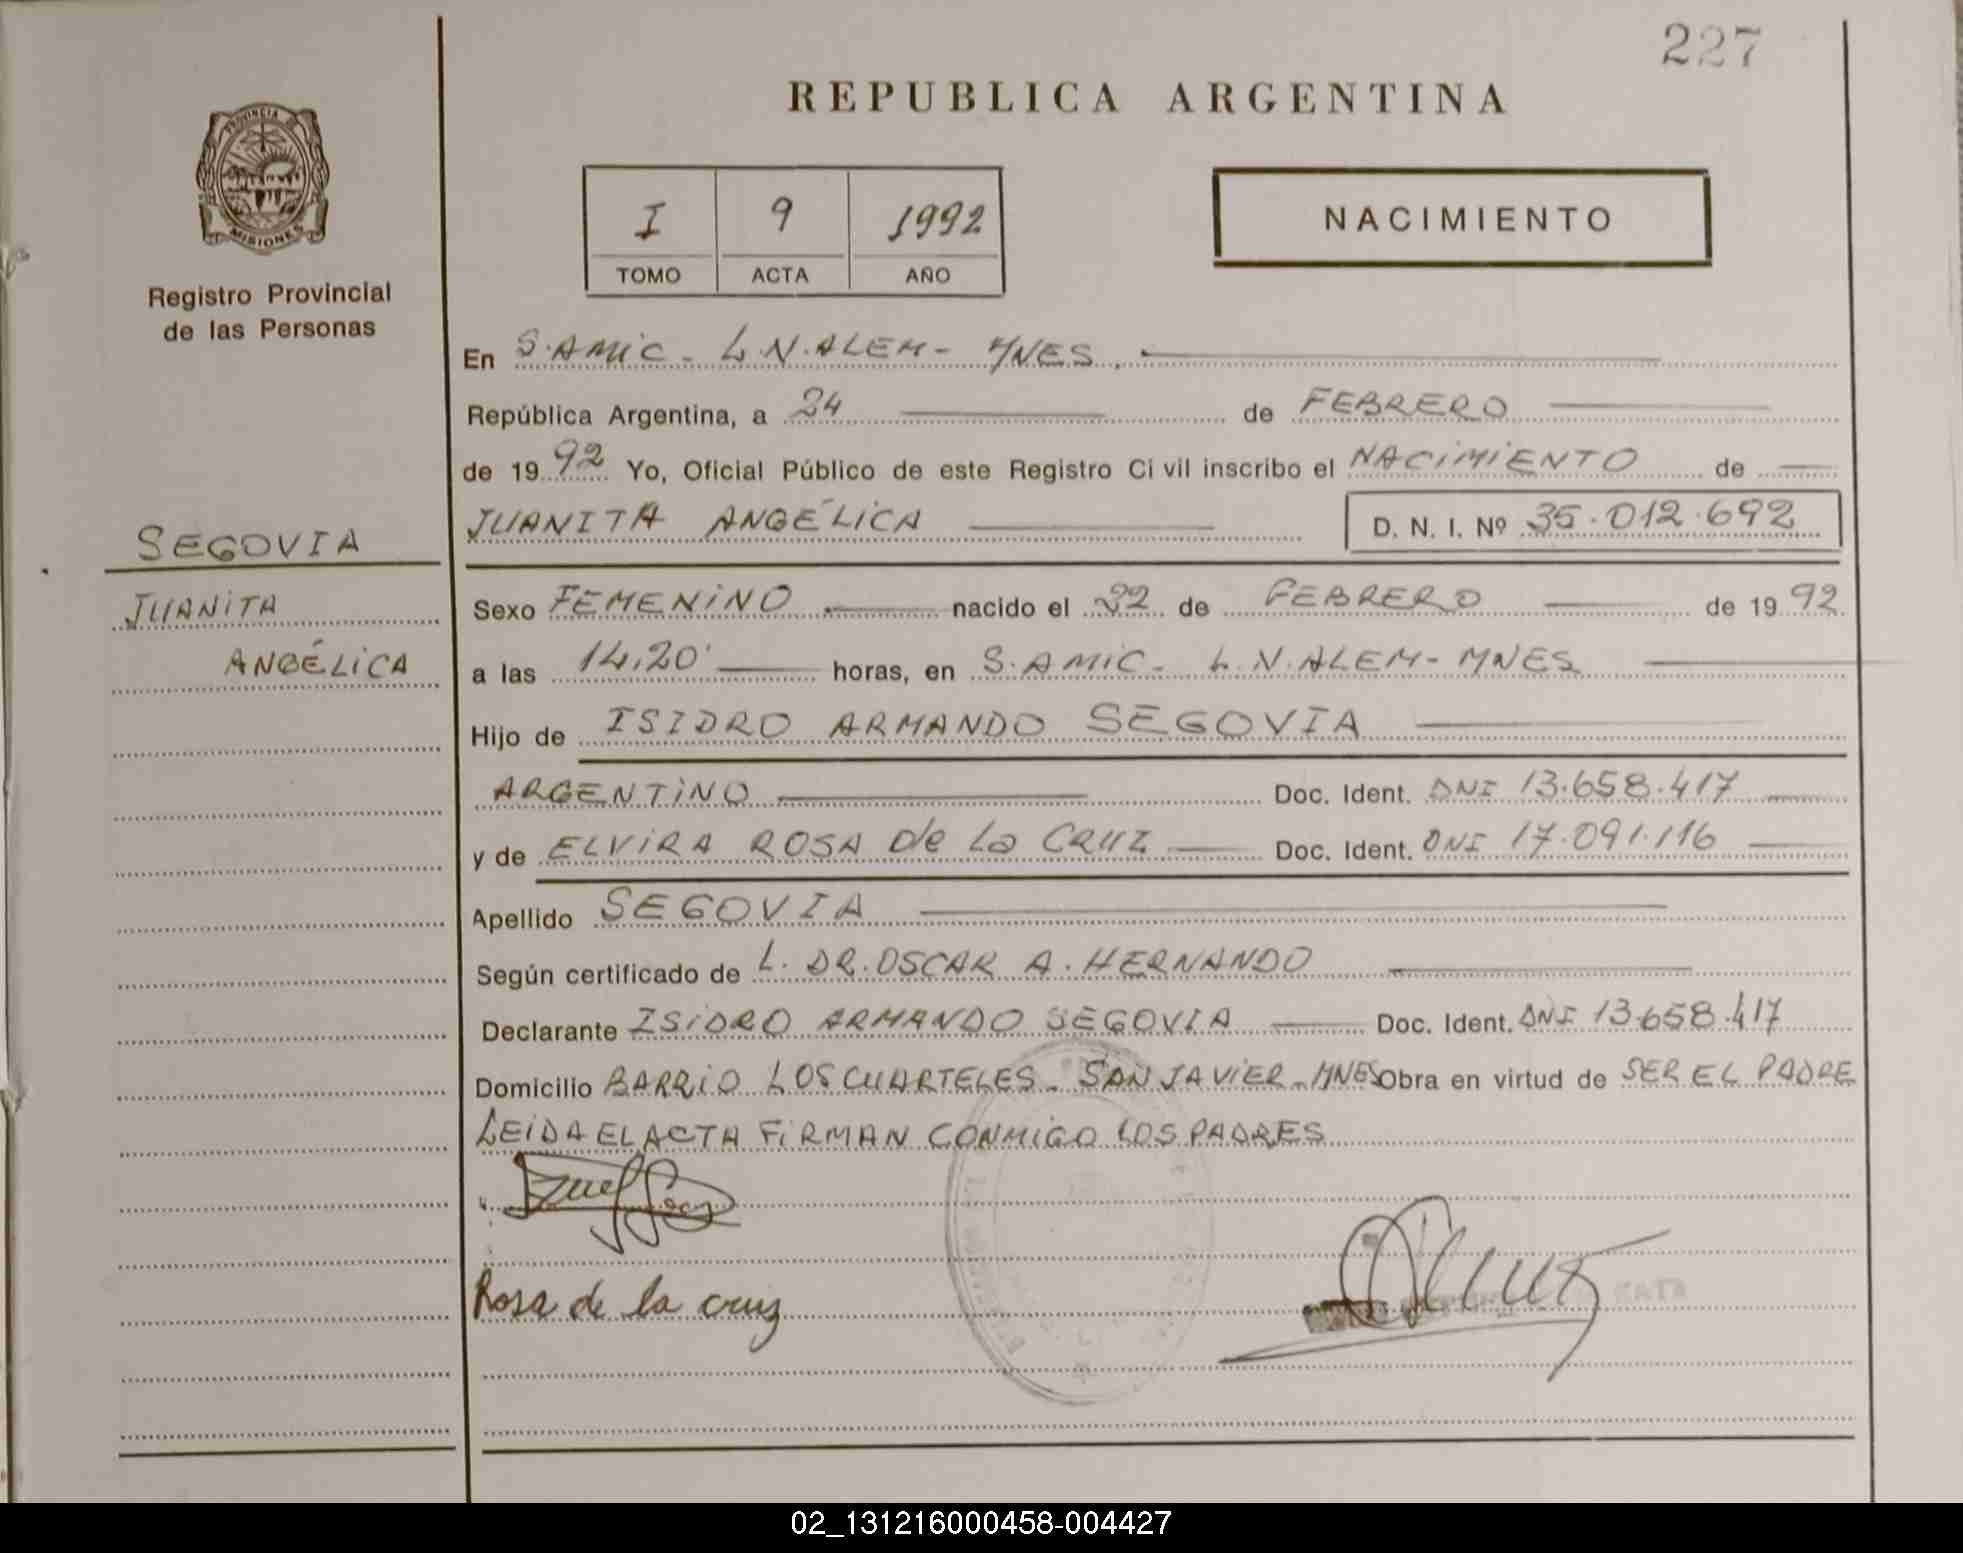 227
REPUBLICA ARGENTINA
PROVINCIA
MISIONES
Registro Provincial
de las Personas
I 9 1992
TOMO ACTA AÑO
NACIMIENTO
En S. AMIC - L.N. ALEM - MNES.
República Argentina, a 24 de FEBRERO
de 1992 Yo, Oficial Público de este Registro Civil inscribo el NACIMIENTO de
JUANITA ANGÉLICA D. N. I. Nº 35.012.692
SEGOVIA
JUANITA
ANGÉLICA
Sexo FEMENINO nacido el 22 de FEBRERO de 1992
a las 14,20' horas, en S. AMIC - L.N. ALEM - MNES
Hijo de ISIDRO ARMANDO SEGOVIA
ARGENTINO Doc. Ident. DNI 13.658.417
y de ELVIRA ROSA de La CRUZ Doc. Ident. DNI 17.091.116
Apellido SEGOVIA
Según certificado de L. DR. OSCAR A. HERNANDO
Declarante ISIDRO ARMANDO SEGOVIA Doc. Ident. DNI 13.658.417
Domicilio BARRIO LOS CUARTELES - SAN JAVIER - MNES Obra en virtud de SER EL PADRE
LEIDA EL ACTA FIRMAN CONMIGO LOS PADRES
Rosa de la cruz
02_131216000458-004427